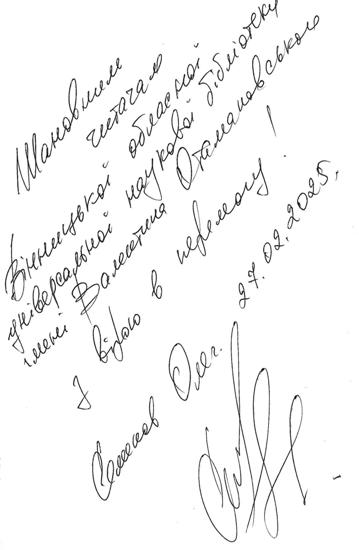 Шановним
читачам
Вінницької обласної
універсальної наукової бібліотеки
імені Валентина Отамановського
З вірою в перемогу!
Семенов Олег. 27.02.2025.